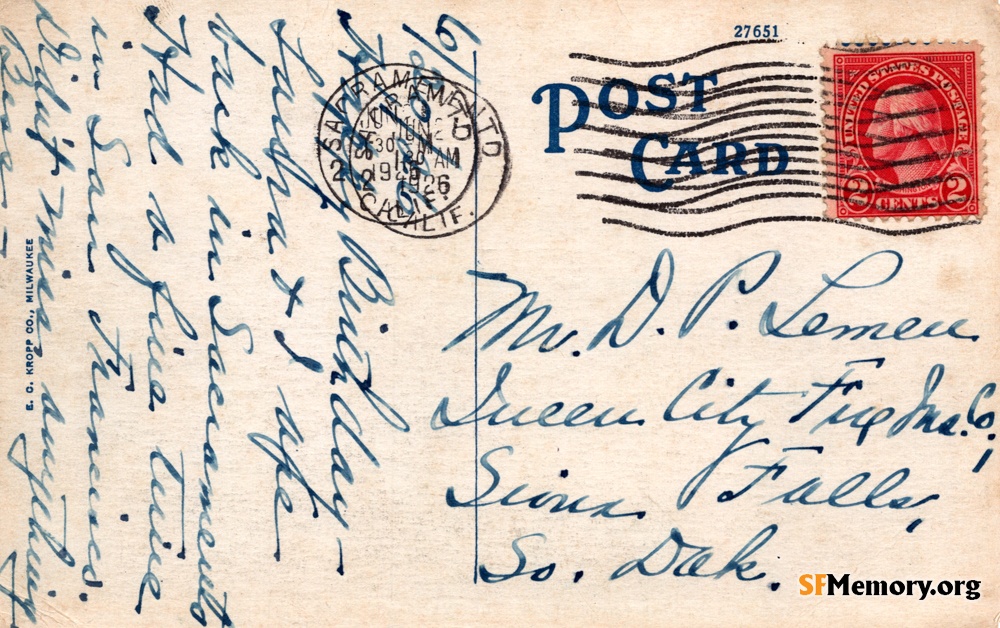 27651
POST
CARD
UNITED STATES POSTAGE
2 CENTS 2
SACRAMENTO
JUN
1 30 AM
1926
CALIF.
6/
My Birthday -
Laura & I are
back in Sacramento
Had a fine time
in San Francisco.
Didn't miss anything
Mr. D. P. Lemen
Queen City Fire Ins. Co,
Sioux Falls,
So. Dak.
E. C. KROPP CO., MILWAUKEE
SFMemory.org